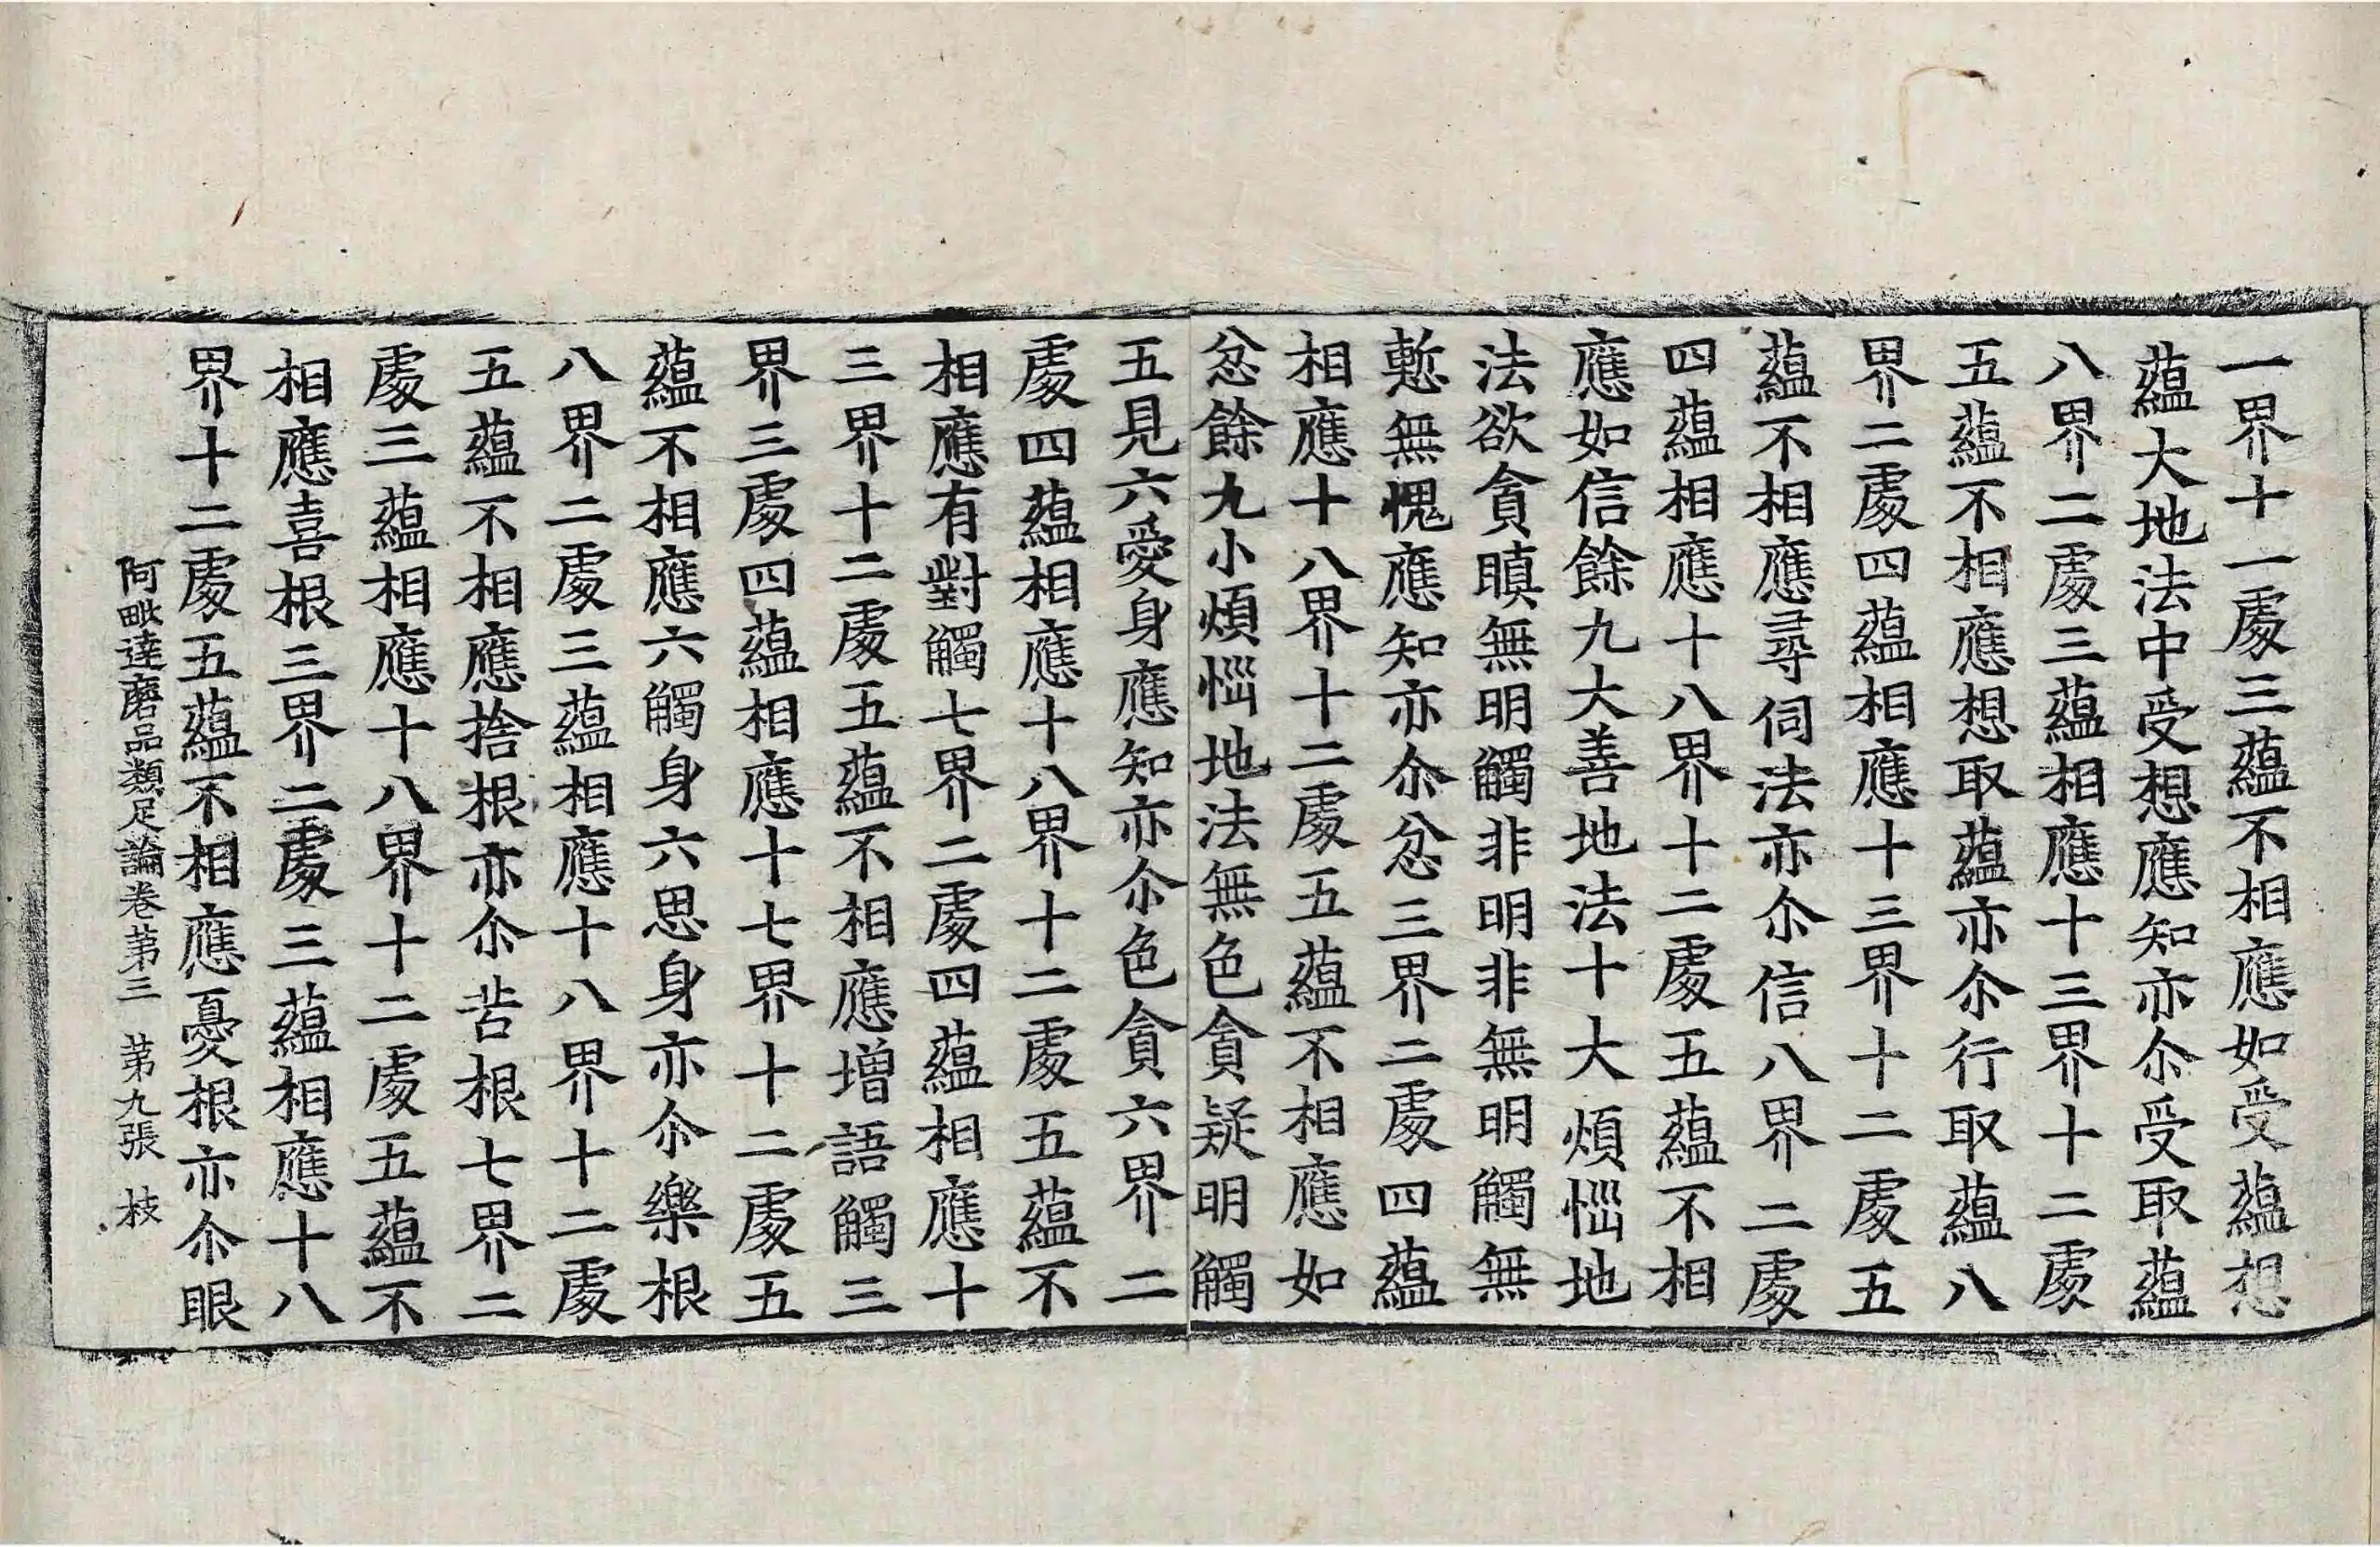 一界十一處三蘊不相應如受蘊想
蘊大地法中受想應知亦尒受取蘊
八界二處三蘊相應十三界十二處
五蘊不相應想取蘊亦尒行取蘊八
界二處四蘊相應十三界十二處五
蘊不相應尋伺法亦尒信八界二處
四蘊相應十八界十二處五蘊不相
應如信餘九大善地法十大煩惱地
法欲貪瞋無明觸非明非無明觸無
慙無愧應知亦尒忿三界二處四蘊
相應十八界十二處五蘊不相應如
忿餘九小煩惱地法無色貪疑明觸
五見六愛身應知亦尒色貪六界二
處四蘊相應十八界十二處五蘊不
相應有對觸七界二處四蘊相應十
三界十二處五蘊不相應增語觸三
界三處四蘊相應十七界十二處五
蘊不相應六觸身六思身亦尒樂根
八界二處三蘊相應十八界十二處
五蘊不相應捨根亦尒苦根七界二
處三蘊相應十八界十二處五蘊不
相應喜根三界二處三蘊相應十八
界十二處五蘊不相應憂根亦尒眼
阿毗達磨品類足論卷第三 第九張 枝